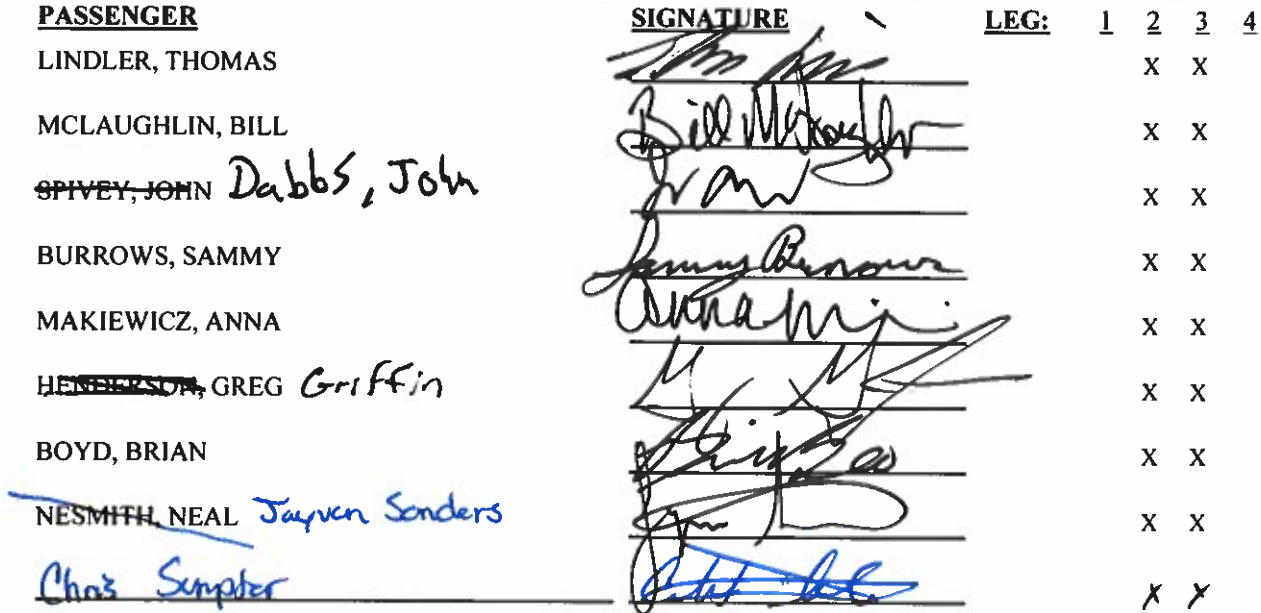 PASSENGER SIGNATURE LEG: 1 2 3 4
LINDLER, THOMAS X X
MCLAUGHLIN, BILL Bill McLaughlin X X
SPIVEY, JOHN Dabbs, John X X
BURROWS, SAMMY Sammy Burrows X X
MAKIEWICZ, ANNA Anna X X
HENDERSON, GREG Griffin X X
BOYD, BRIAN X X
NESMITH, NEAL Jayven Sanders X X
Chris Sumpter X X